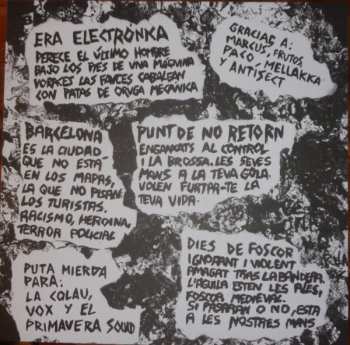 ERA ELECTRÓNKA
PERECE EL ÚLTIMO HOMBRE
BAJO LOS PIES DE UNA MÁQUINA
VORACES LAS FAUCES CABALGAN
CON PATAS DE ORUGA MECANICA
GRACIAS A:
MARCUS, FRUTOS
PACO, MELLAKKA
Y ANTISECT
BARCELONA
ES LA CIUDAD
QUE NO ESTÁ
EN LOS MAPAS,
LA QUE NO PISAN
LOS TURISTAS.
RACISMO, HEROINA,
TERROR POLICIAL
PUNT DE NO RETORN
ENGANXATS AL CONTROL
I LA BROSSA. LES SEVES
MANS A LA TEVA GOLA.
VOLEN FURTAR-TE LA
TEVA VIDA
PUTA MIERDA
PARA:
LA COLAU,
VOX Y EL
PRIMAVERA SOUND
DIES DE FOSCOR
IGNORANT I VIOLENT
AMAGAT TRAS LA BANDERA
L'AGUILA ESTEN LES ALES,
FOSCOR MEDIEVAL.
SI PASARAN O NO, ESTA
A LES NOSTRES MANS